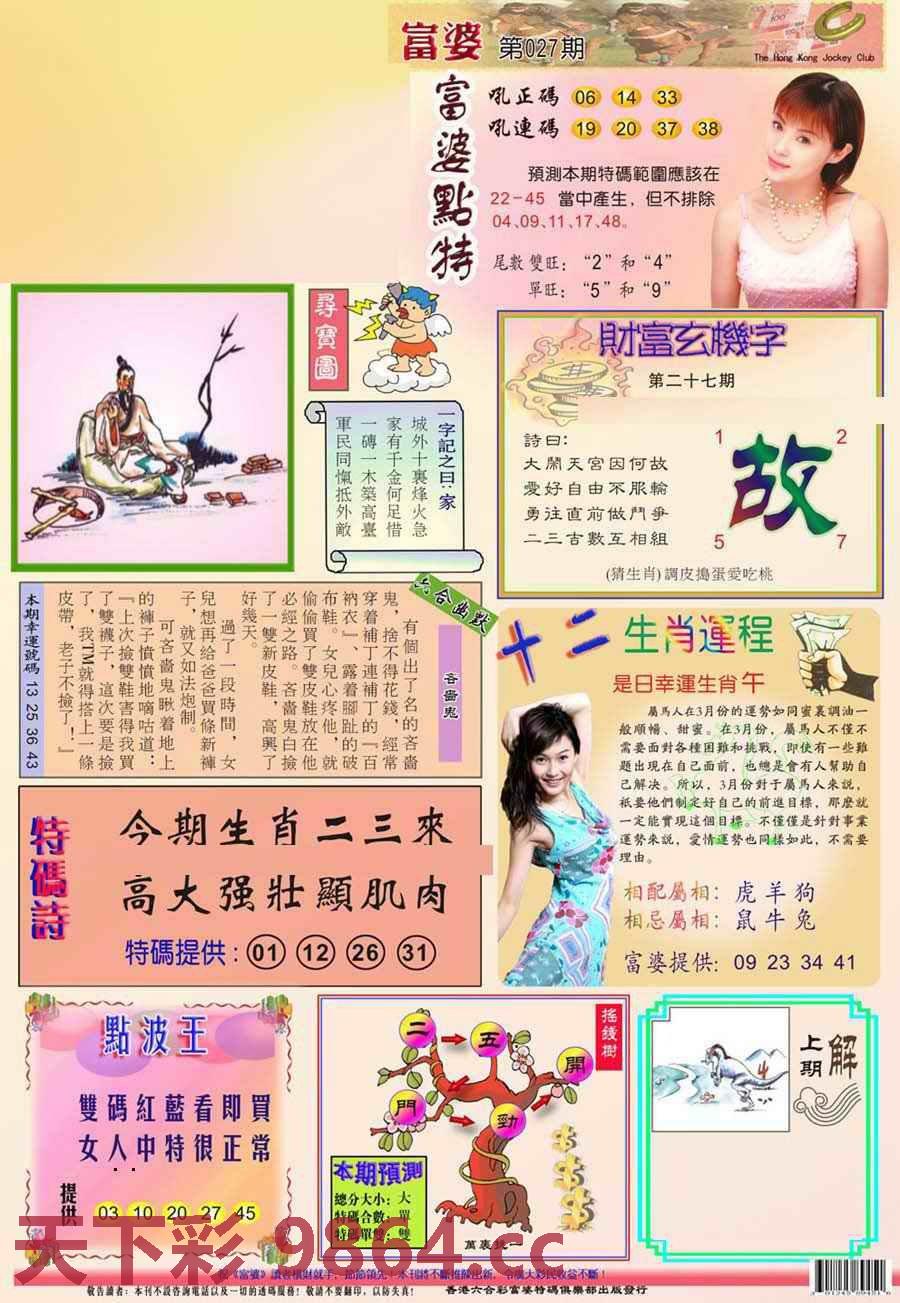 富婆 第027期
The Hong Kong Jockey Club
富婆點特
吼正碼 06 14 33
吼連碼 19 20 37 38
預測本期特碼範圍應該在
22-45 當中產生，但不排除
04、09、11、17、48。
尾數雙旺：“2”和“4”
單旺：“5”和“9”
尋寶圖
一字記之曰：家
城外十裏烽火急
家有千金何足惜
一磚一木築高臺
軍民同愾抵外敵
財富玄機字
第二十七期
詩曰：
大鬧天宮因何故
愛好自由不服輸
勇往直前做鬥爭
二三吉數互相組
1 2
故
5 7
(猜生肖)調皮搗蛋愛吃桃
六合幽默
吝嗇鬼
有個出了名的吝嗇
鬼，捨不得花錢，經常
穿着補丁連補丁的『百
衲衣』、露着腳趾的破
布鞋。女兒心疼他，就
偷偷買了雙皮鞋放在他
必經之路。吝嗇鬼白撿
了一雙新皮鞋，高興了
好幾天。
過了一段時間，女
兒想再給爸爸買條新褲
子，就又如法炮制。
可吝嗇鬼瞅着地上
的褲子憤憤地嘀咕道：
『上次撿雙鞋害得我買
了雙襪子，這次要是撿
了，我TM就得搭上一條
皮帶，老子不撿了！』
本期幸運號碼 13 25 36 43
十二生肖運程
是日幸運生肖 午
屬馬人在3月份的運勢如同蜜裏調油一
般順暢、甜蜜。在3月份，屬馬人不僅不
需要面對各種困難和挑戰，即使有一些難
題出現在自己面前，也總是會有人幫助自
己解决。所以，3月份對于屬馬人來説，
祇要他們制定好自己的前進目標，那麽就
一定能實現這個目標。不僅僅是針對事業
運勢來説，愛情運勢也同樣如此，不需要
理由。
相配屬相：虎羊狗
相忌屬相：鼠牛兔
富婆提供：09 23 34 41
特碼詩
今期生肖二三來
高大强壯顯肌肉
特碼提供：01 12 26 31
點波王
雙碼紅藍看即買
女人中特很正常
提供 03 10 20 27 45
搖錢樹
二 五
開
門 勁
本期預測
總分大小：大
特碼合數：單
特碼單雙：雙
萬裏挑一
上期解
天下彩 9864.cc
祝《富婆》讀者橫財就手，節節領先！本刊將不斷推陳出新，令廣大彩民收益不斷！
敬告讀者：本刊不設咨詢電話以及一切的透碼服務！敬請不要翻印，以防失真！
香港六合彩富婆特碼俱樂部出版發行